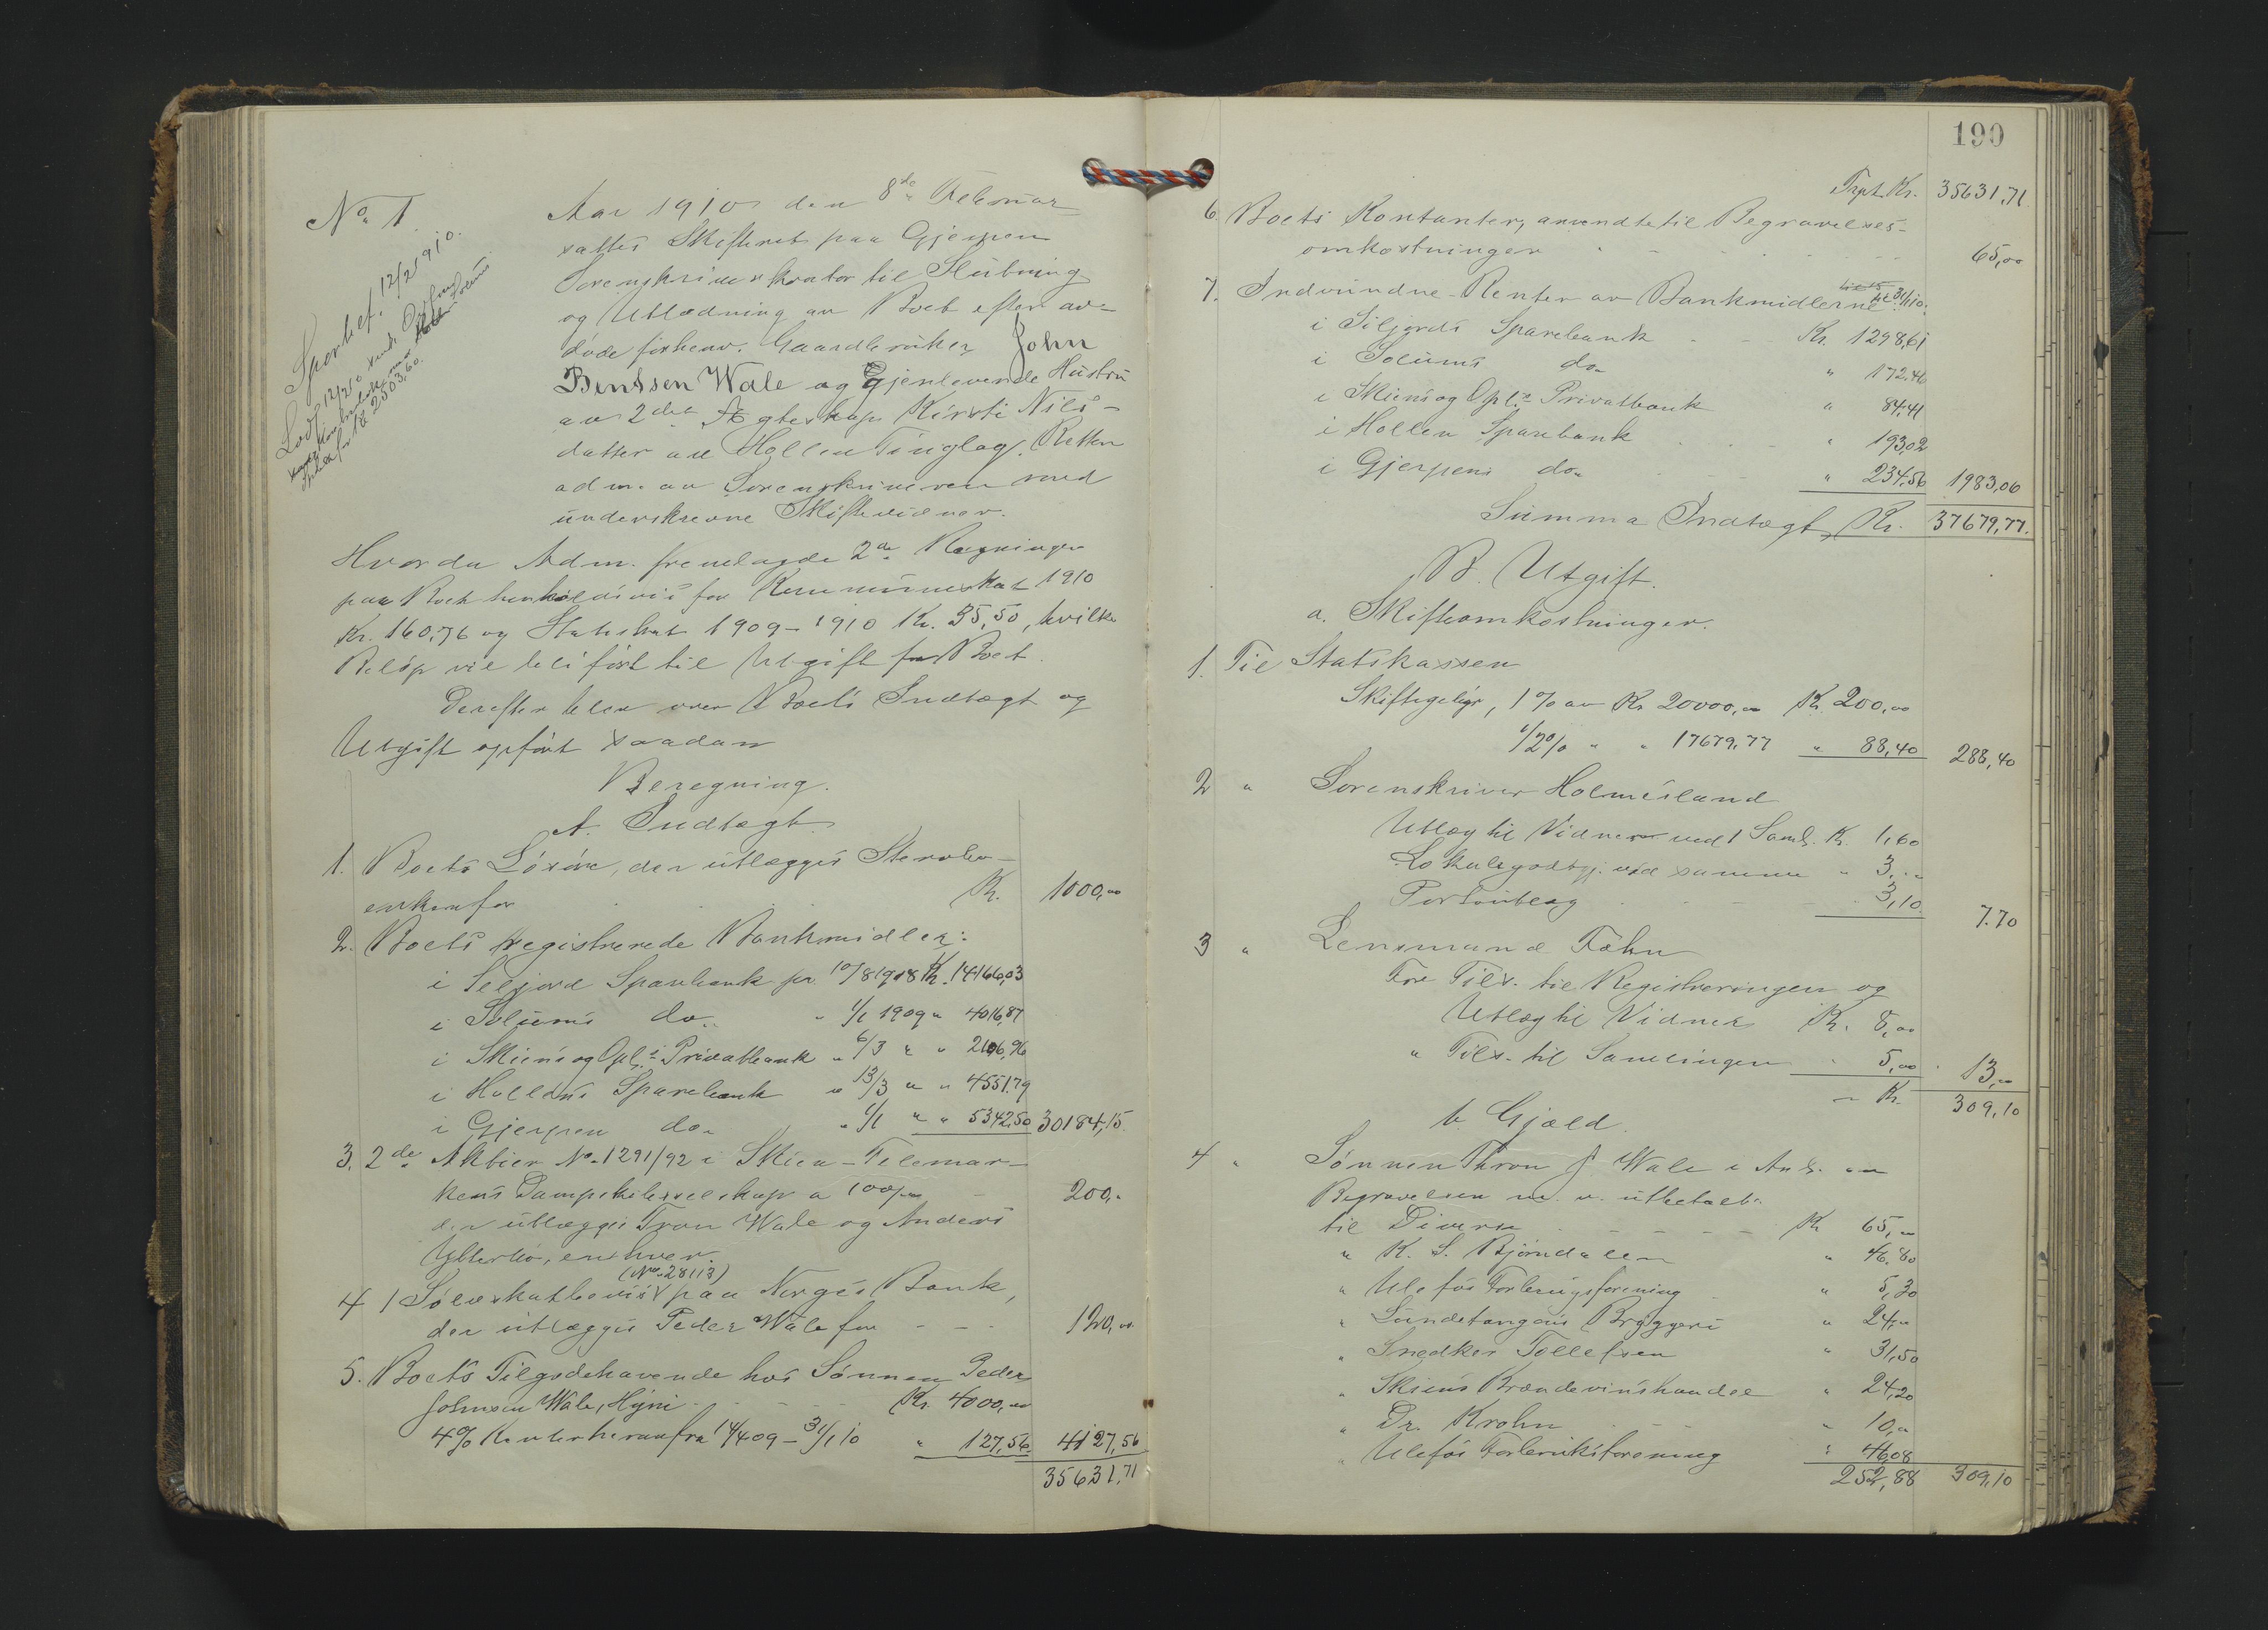 No. 1.
Aar 1910 den 8de Februar
sattes Skifteret paa Gjerpen
Sorenskriverkontor til Slutning
og Utlodning av Boet efter av-
døde forhenv. Gaardbruker John
Bentsen Wale og gjenlevende Hustru
av 2det Ægteskap Kirsti Nils-
datter av Hollen Tinglag. Retten
adm. av Sorenskriveren med
underskrevne Skiftevidner.
12/2 1910.
Hvorda Adm. fremlagde 2de Regninger
paa Boet henholdsvis for Kommuneskat 1910
Kr. 160,76 og Statsskat 1909-1910 Kr. 35,50, hvilke
Beløp vil bli ført til Utgift for Boet.
Derefter blev over Boets Indtægt og
Utgift opført saadan
Beregning.
A. Indtægt.
1. Boets Løsøre, der utlægges Stervbo-
enken for Kr. 1000,00
2. Boets registrerede Bankmidler:
i Seljord Sparebank pr. 10/8 1908 Kr. 14166,03
i Solums do. " 1/1 1909 " 4016,87
i Skiens og Opl.s Privatbank " 6/3 " " 2106,96
i Hollens Sparebank " 13/3 " " 4551,79
i Gjerpen do. " 1/1 " " 5342,50 30184,15.
3. 2de Aktier No. 1291/92 i Skien-Telemar-
kens Dampskibsselskap a 100,00 200,-
der utlægges Tron Wale og Anders
Ytterbø, en hver.
(No. 28113)
4 1 Sølvskatbevis paa Norges Bank,
der utlægges Peder Wale for - - - 120,00
5. Boets Tilgodehavende hos Sønnen Peder
Johnsen Wale, Hyni Kr. 4000,00
4% Renter herav fra 14/4 09 - 31/1 10 " 127,56. 4127,56
35631,71
190
Trpt. Kr. 35631,71
6. Boets Kontanter, anvendte til Begravelses-
omkostninger 65,00
7. Indvundne Renter av Bankmidlerne til 31/1 10.
i Siljords Sparebank Kr. 1298,61
i Solums do. " 172,46
i Skiens og Opl.s Privatbank " 84,41
i Hollen Sparebank " 193,02
i Gjerpens do. " 234,56 1983,06
Summa Indtægt, Kr. 37679,77.
B. Utgift.
a. Skifteomkostninger.
1. Til Statskassen
Skiftegebyr, 1% av Kr. 20000,00 Kr. 200,00
1/2% " " 17679,77 " 88,40 288,40
2 " Sorenskriver Holmesland
Utlæg til Vidner ved 1 Saml. Kr. 1,60
Lokalegodtgj. ved samme " 3,00
Portoutlæg 3,10 7.70
3 " Lensmand Fæhn
For Tils. til Registreringen og
Utlæg til Vidner Kr. 8,00
" Tils. til Samlingen " 5,00 13,00
- Kr. 309,10
b. Gjæld.
4 " Sønnen Thron J. Wale i Anl. av
Begravelsen m. v. utbetalt:
til Diverse Kr. 65,00
" K. S. Bjørndalen " 46.80
" Ulefos Forbrugsforening " 5,30
" Lundetangens Bryggeri " 24,00
" Snedker Tollefsen " 31,50
" Skiens Brændevinshandel " 24,20
" Dr. Krohn " 10,00
" Ulefos Forbruksforening " 46,08
252,88 309,10